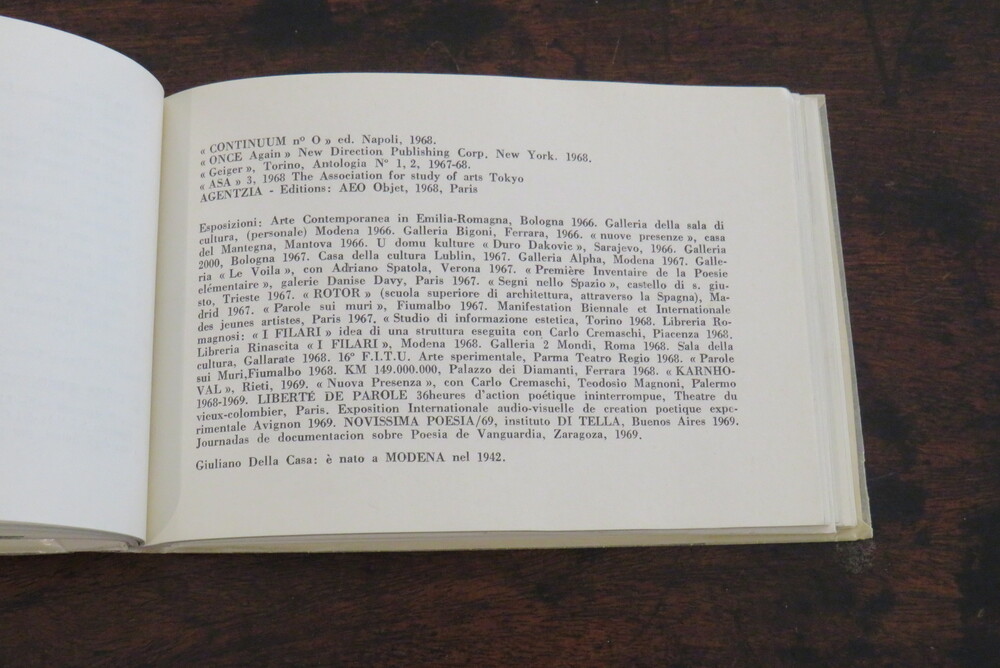 « CONTINUUM nº O » ed. Napoli, 1968.
« ONCE Again » New Direction Publishing Corp. New York. 1968.
« Geiger », Torino, Antologia Nº 1, 2, 1967-68.
« ASA » 3, 1968 The Association for study of arts Tokyo
AGENTZIA - Editions: AEO Objet, 1968, Paris
Esposizioni: Arte Contemporanea in Emilia-Romagna, Bologna 1966. Galleria della sala di
cultura, (personale) Modena 1966. Galleria Bigoni, Ferrara, 1966. « nuove presenze », casa
del Mantegna, Mantova 1966. U domu kulture « Duro Dakovic », Sarajevo, 1966. Galleria
2000, Bologna 1967. Casa della cultura Lublin, 1967. Galleria Alpha, Modena 1967. Galle-
ria « Le Voila », con Adriano Spatola, Verona 1967. « Première Inventaire de la Poesie
elémentaire », galerie Danise Davy, Paris 1967. « Segni nello Spazio », castello di s. giu-
sto, Trieste 1967. « ROTOR » (scuola superiore di architettura, attraverso la Spagna), Ma-
drid 1967. « Parole sui muri », Fiumalbo 1967. Manifestation Biennale et Internationale
des jeunes artistes, Paris 1967. « Studio di informazione estetica, Torino 1968. Libreria Ro-
magnosi: « I FILARI » idea di una struttura eseguita con Carlo Cremaschi, Piacenza 1968.
Libreria Rinascita « I FILARI », Modena 1968. Galleria 2 Mondi, Roma 1968. Sala della
cultura, Gallarate 1968. 16º F.I.T.U. Arte sperimentale, Parma Teatro Regio 1968. « Parole
sui Muri,Fiumalbo 1968. KM 149.000.000, Palazzo dei Diamanti, Ferrara 1968. « KARNHO-
VAL », Rieti, 1969. « Nuova Presenza », con Carlo Cremaschi, Teodosio Magnoni, Palermo
1968-1969. LIBERTÉ DE PAROLE 36heures d'action poétique ininterrompue, Theatre du
vieux-colombier, Paris. Exposition Internationale audio-visuelle de creation poetique expe-
rimentale Avignon 1969. NOVISSIMA POESIA/69, instituto DI TELLA, Buenos Aires 1969.
Journadas de documentacion sobre Poesia de Vanguardia, Zaragoza, 1969.
Giuliano Della Casa: è nato a MODENA nel 1942.